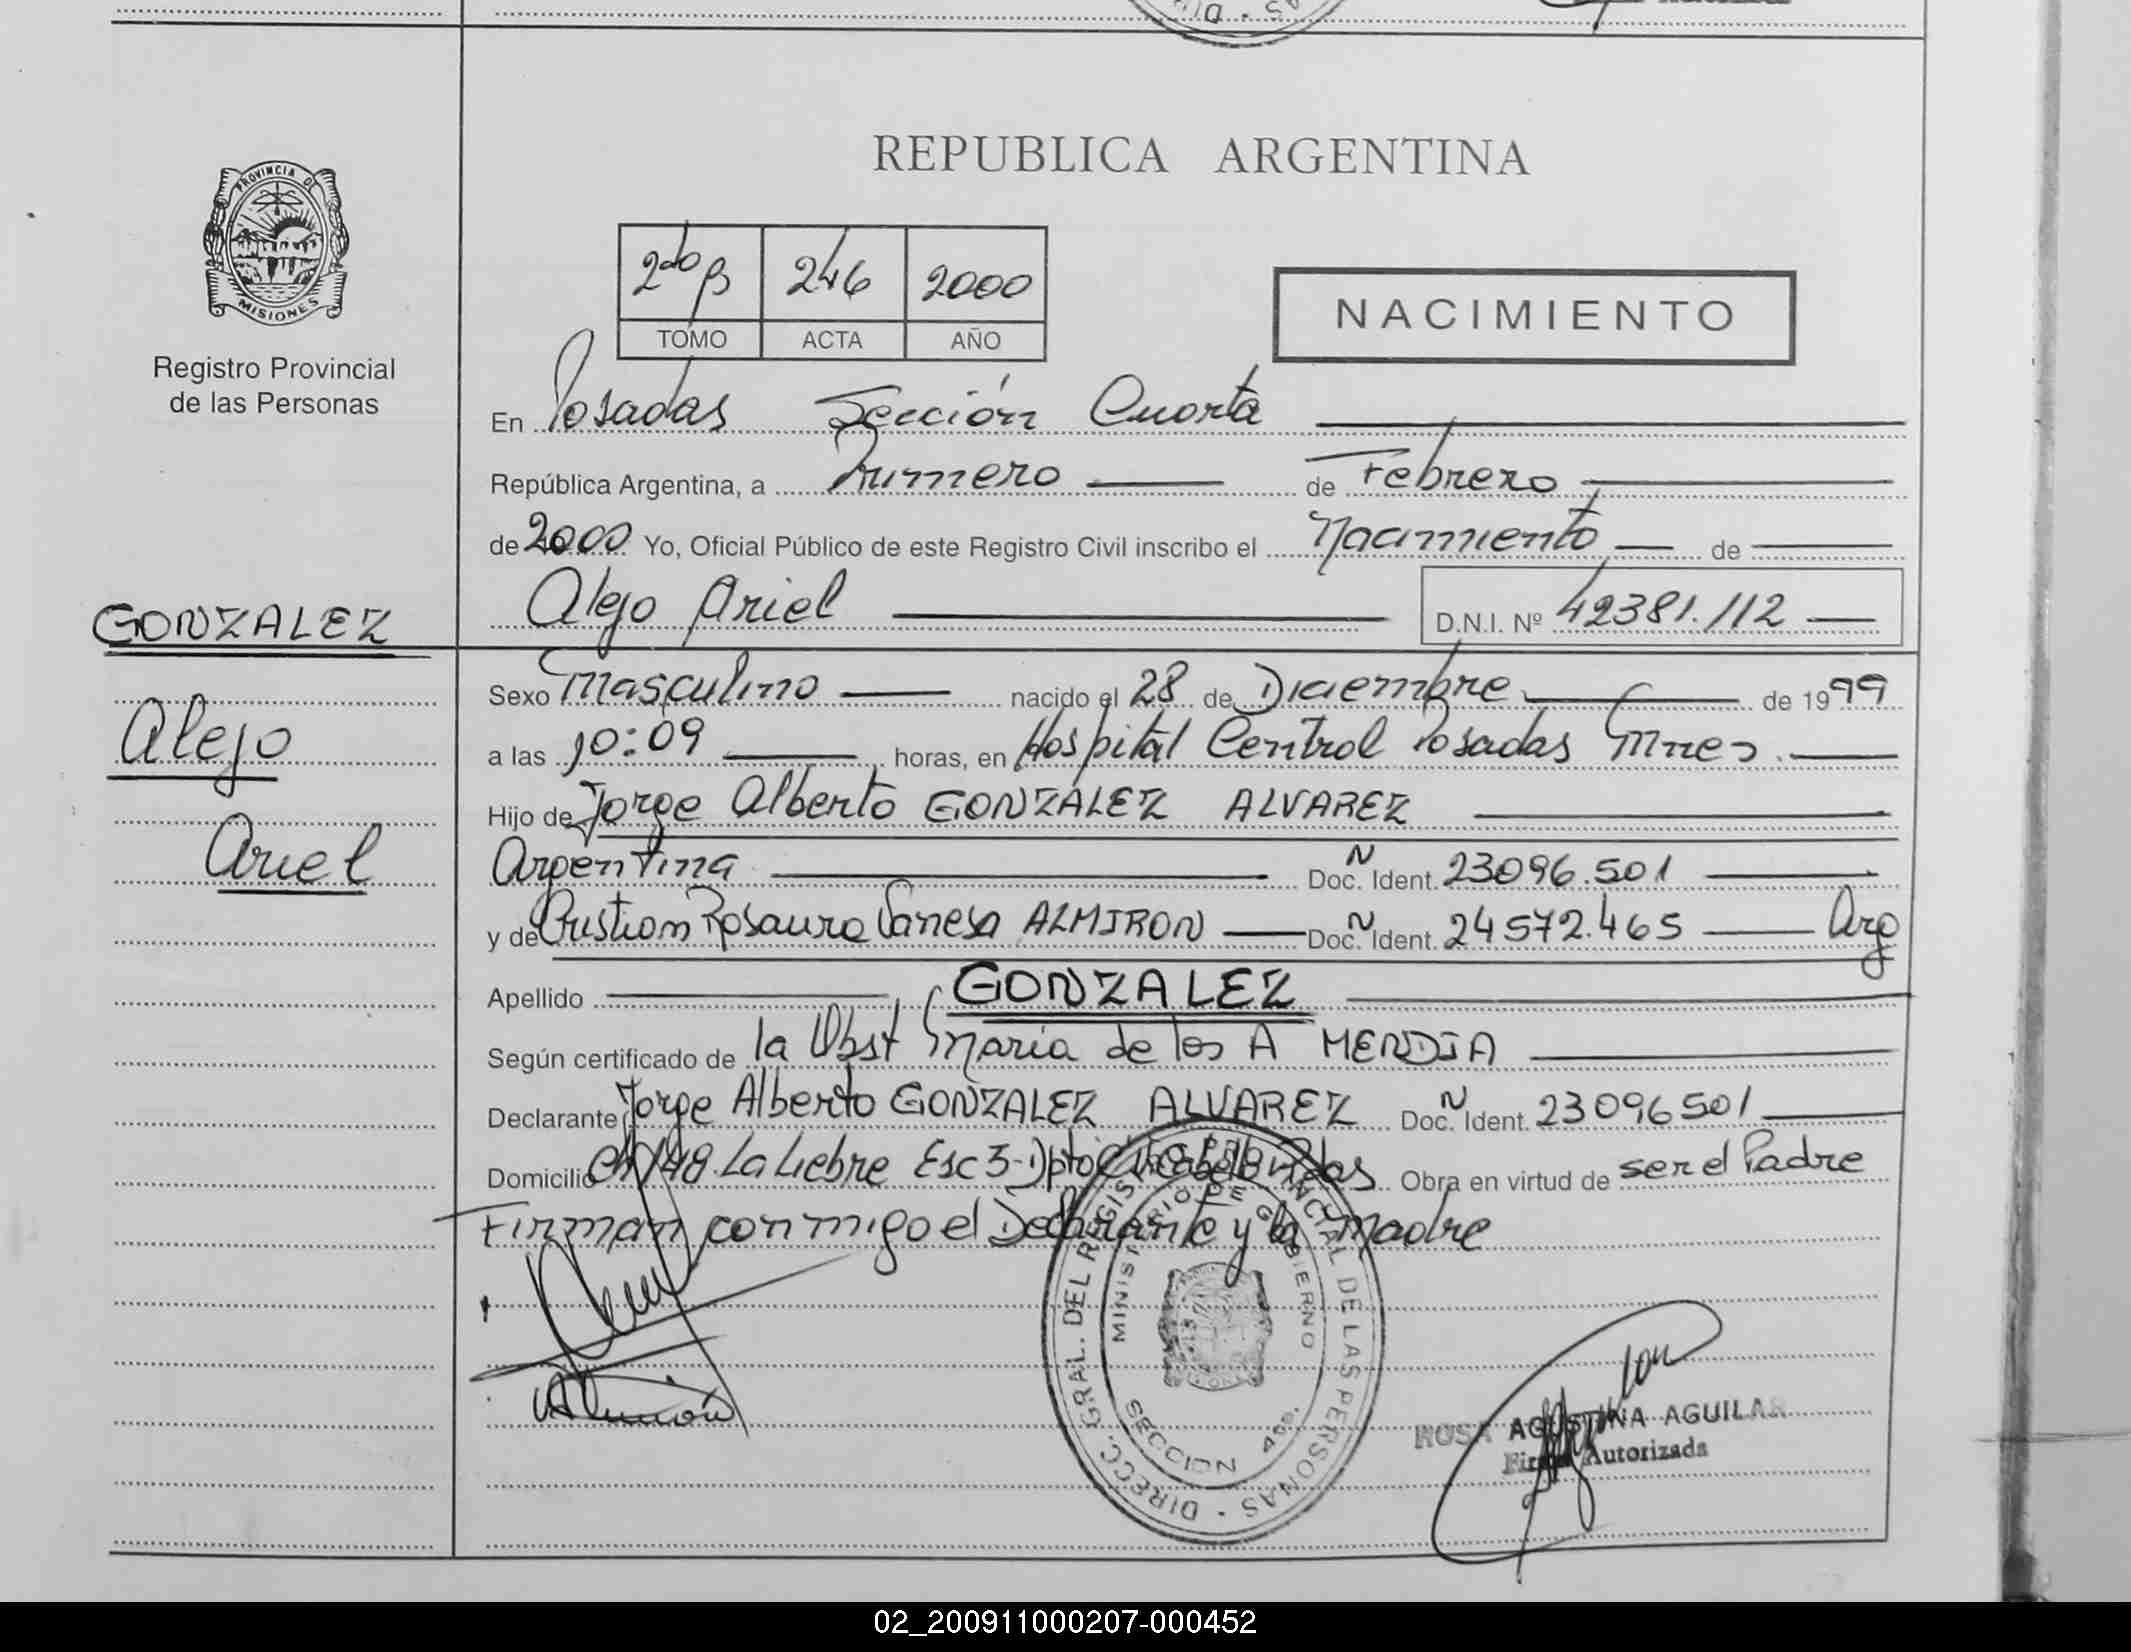 REPUBLICA ARGENTINA
PROVINCIA DE
MISIONES
Registro Provincial
de las Personas
2do B 246 2000
TOMO ACTA AÑO
NACIMIENTO
En Posadas Sección Cuarta
República Argentina, a Primero de Febrero
de 2000 Yo, Oficial Público de este Registro Civil inscribo el Nacimiento de
Alejo Ariel D.N.I. Nº 42381.112
GONZALEZ
Alejo
Ariel
Sexo Masculino nacido el 28 de Diciembre de 1999
a las 10:09 horas, en Hospital Central Posadas Mnes
Hijo de Jorge Alberto GONZALEZ ALVAREZ
Argentina Doc. N Ident. 23096.501
y de Cristian Rosaura Vanesa ALMIRON Doc. N Ident. 24572.465 Arg
Apellido GONZALEZ
Según certificado de la Obst Maria de los A MENDIA
Declarante Jorge Alberto GONZALEZ ALVAREZ Doc. N Ident. 23096501
Domicilio Ch 148 La Liebre Esc 3-Dpto Obra en virtud de ser el Padre
Firman conmigo el Declarante y la Madre
DIRECC. GRAL. DEL REGISTRO PROVINCIAL DE LAS PERSONAS
MINISTERIO DE GOBIERNO
SECCION 4ta.
ROSA AGUSTINA AGUILAR
Firma Autorizada
02_200911000207-000452